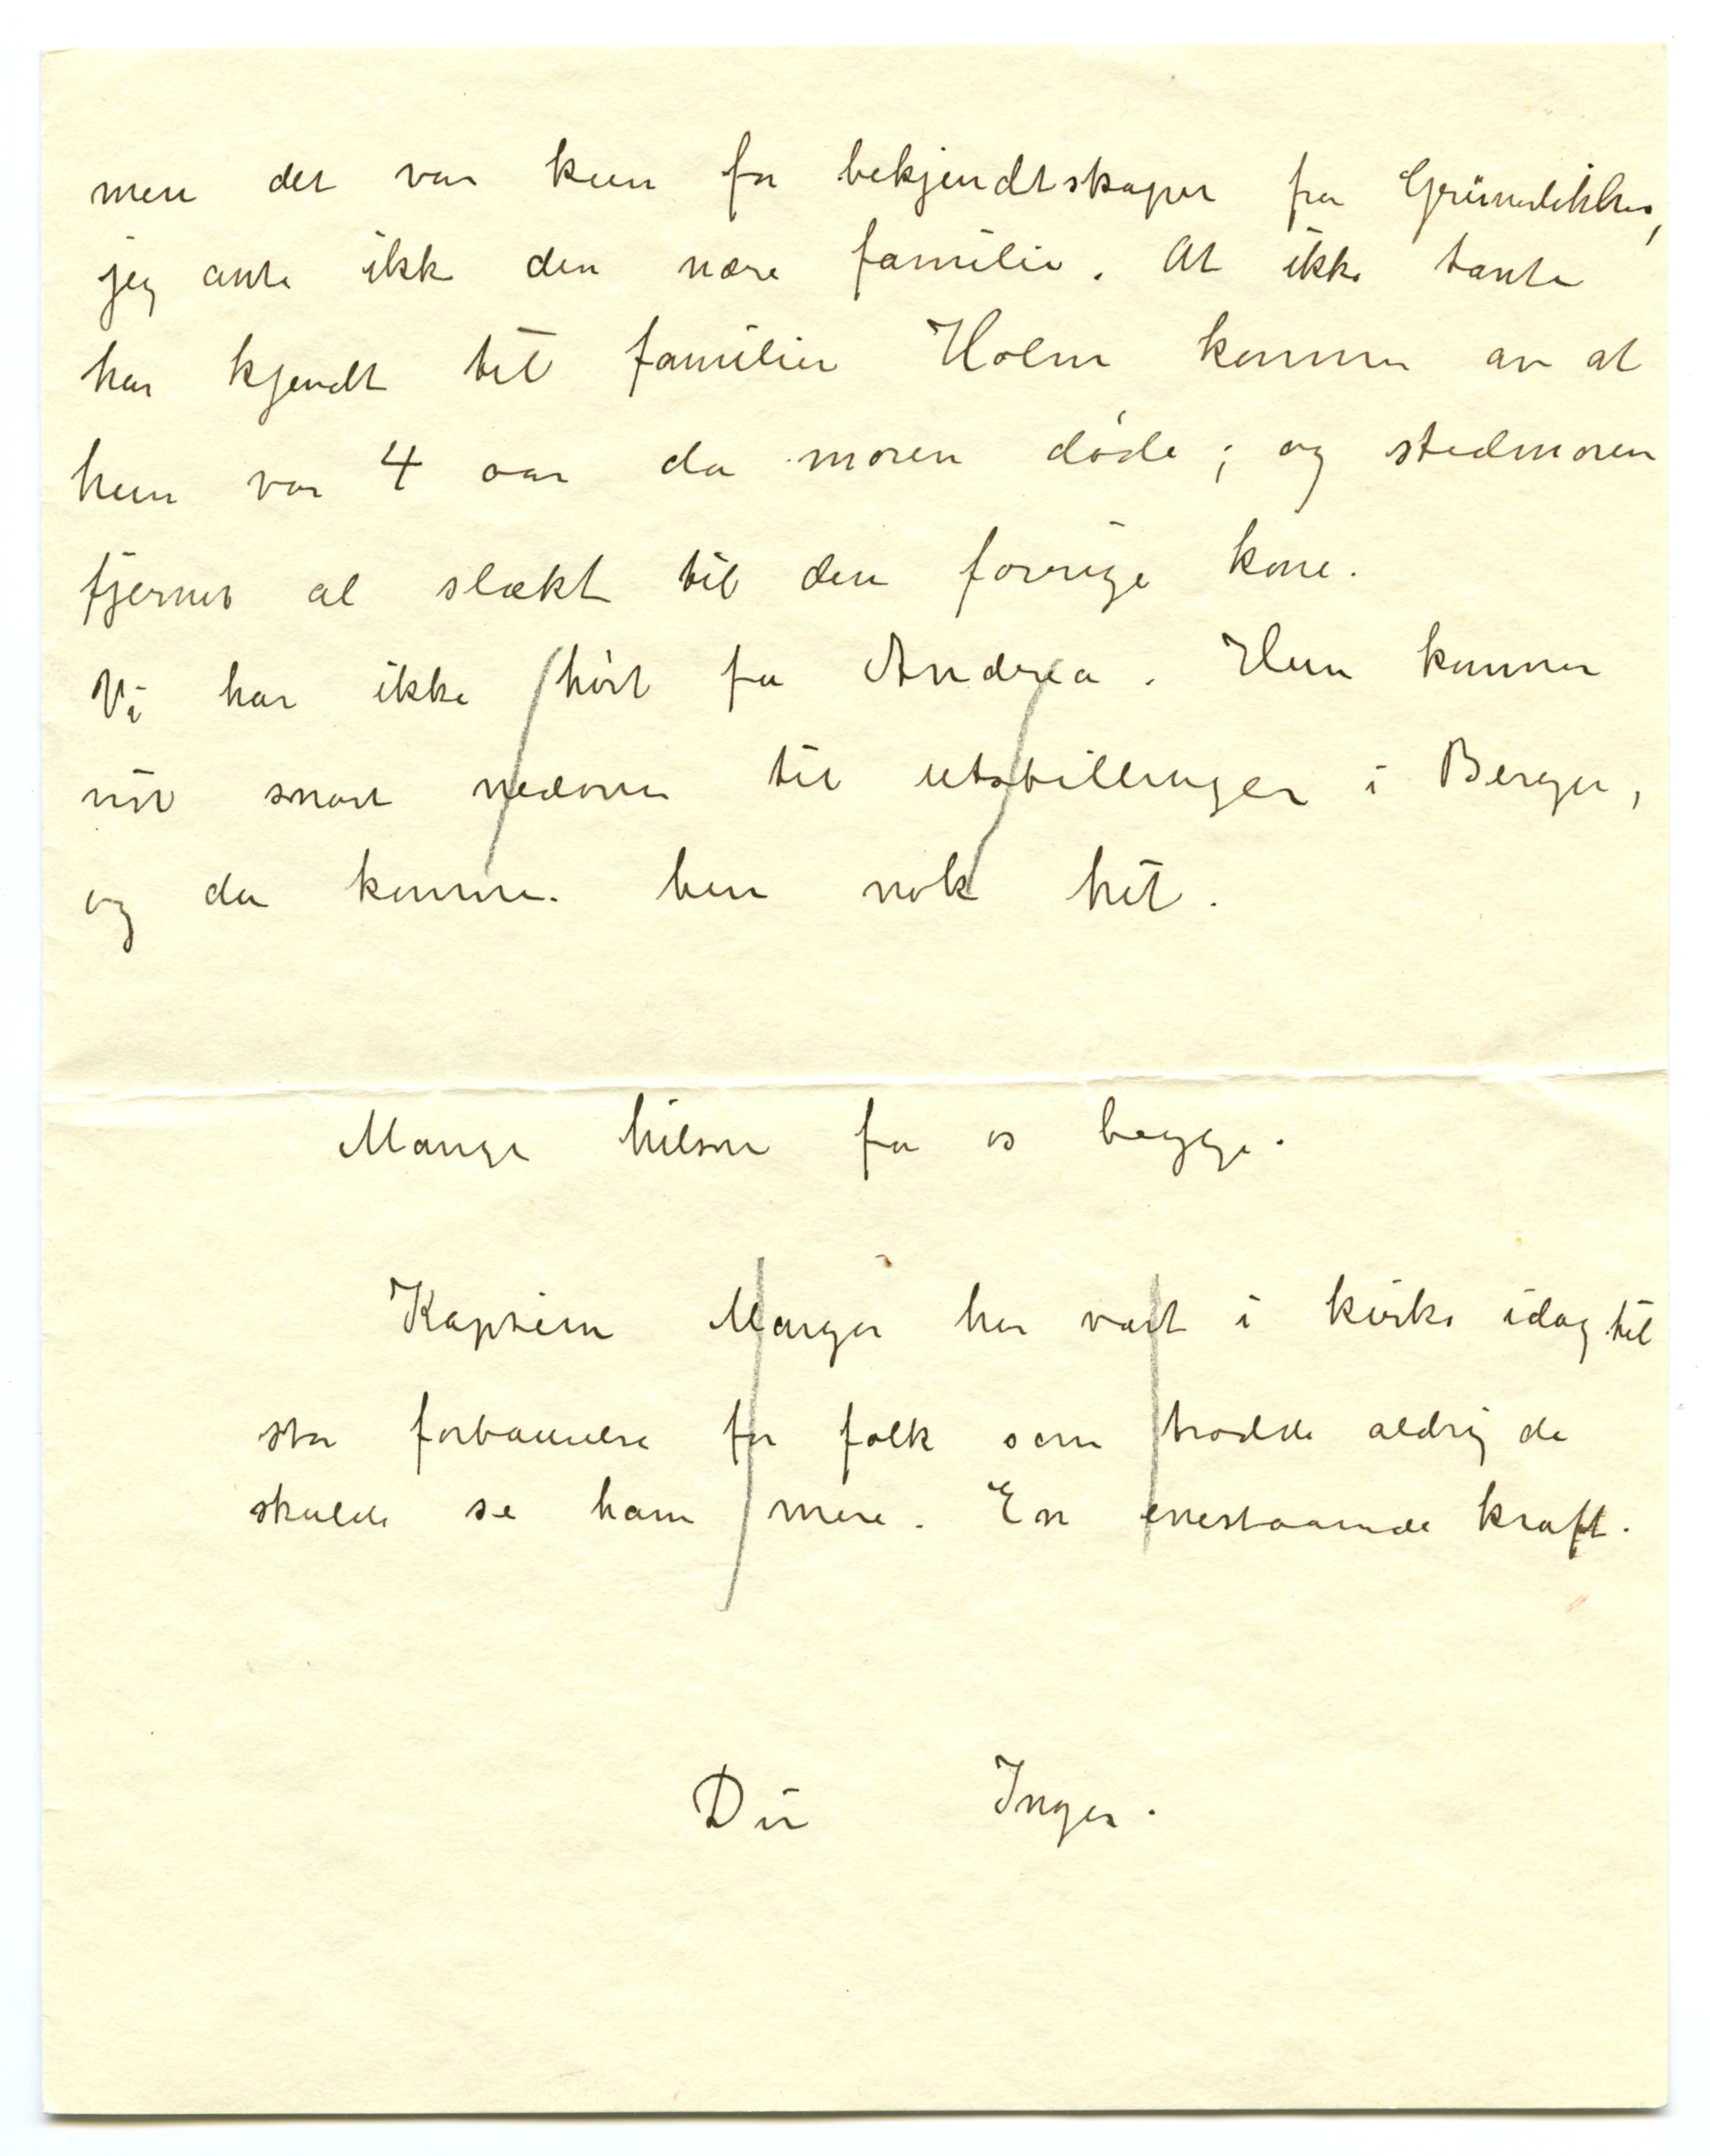 men det var kun for bekjendtskaper fra Grünerløkken,
jeg ante ikke den nære familie. At ikke tante
har kjendt til familien Holm kommer av at
hun var 4 aar da moren døde; og stedmoren
fjernet al slækt til den forrige kone.
Vi har ikke hørt fra Andrea. Hun kommer
vist snart nedover til utstillingen i Bergen,
og da kommer hun nok hit.
Mange hilsner fra os begge.
Kaptein Manger har vært i kirke idag til
stor forbauselse for folk som trodde aldrig de
skulde se ham mere. En enestaaende kraft.
Din Inger.